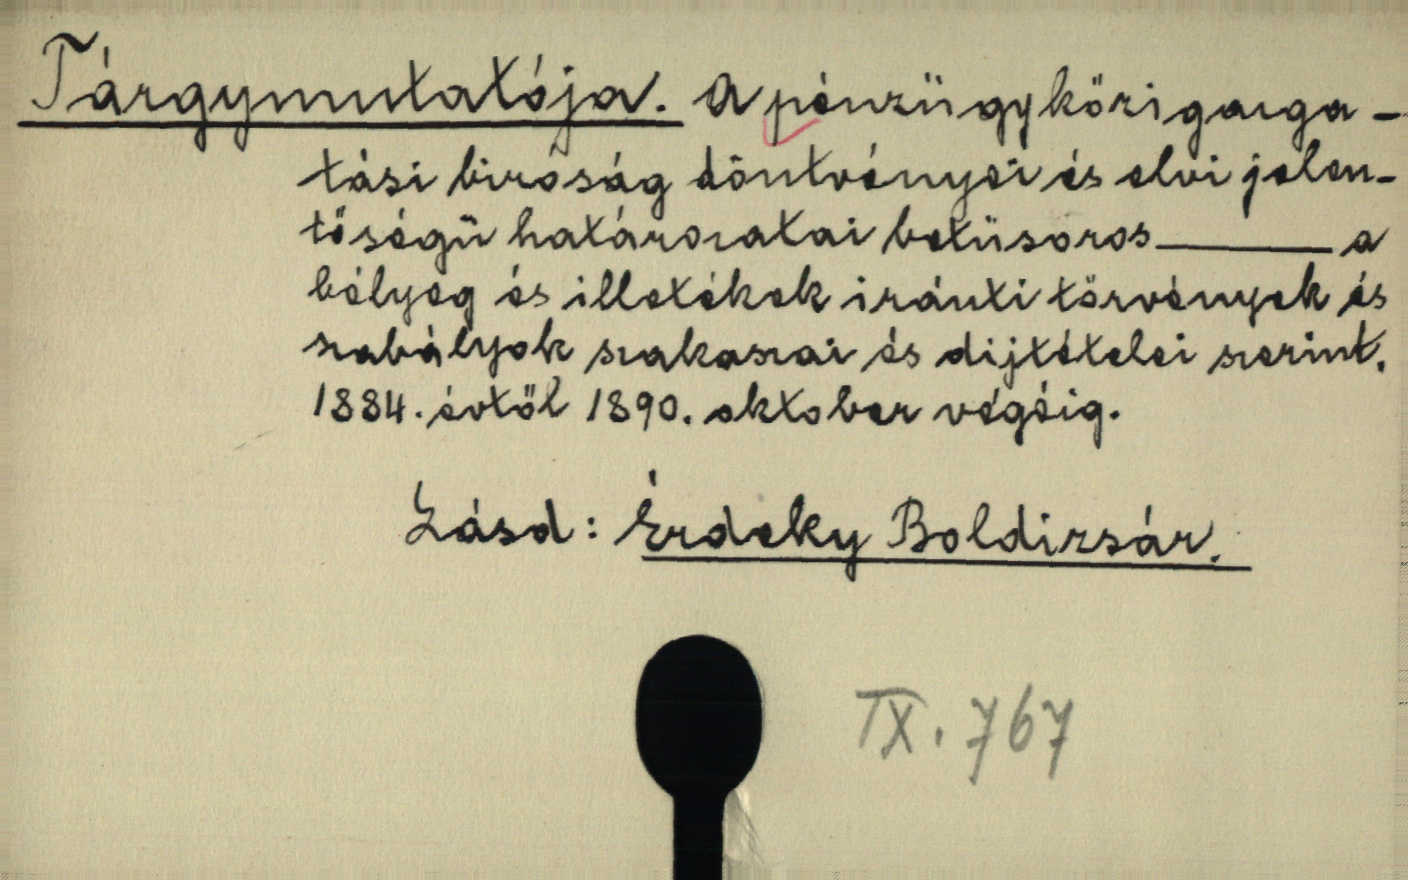 Tárgymutatója. A pénzügyközigazga-
tási biróság döntvényei és elvi jelen-
tőségü határozatai betüsoros ——— a
bélyeg és illetékek iránti törvények és
szabályok szakaszai és dijtételei szerint.
1884. évtől 1890. oktober végéig.
Lásd: Érdeky Boldizsár.
IX. 767